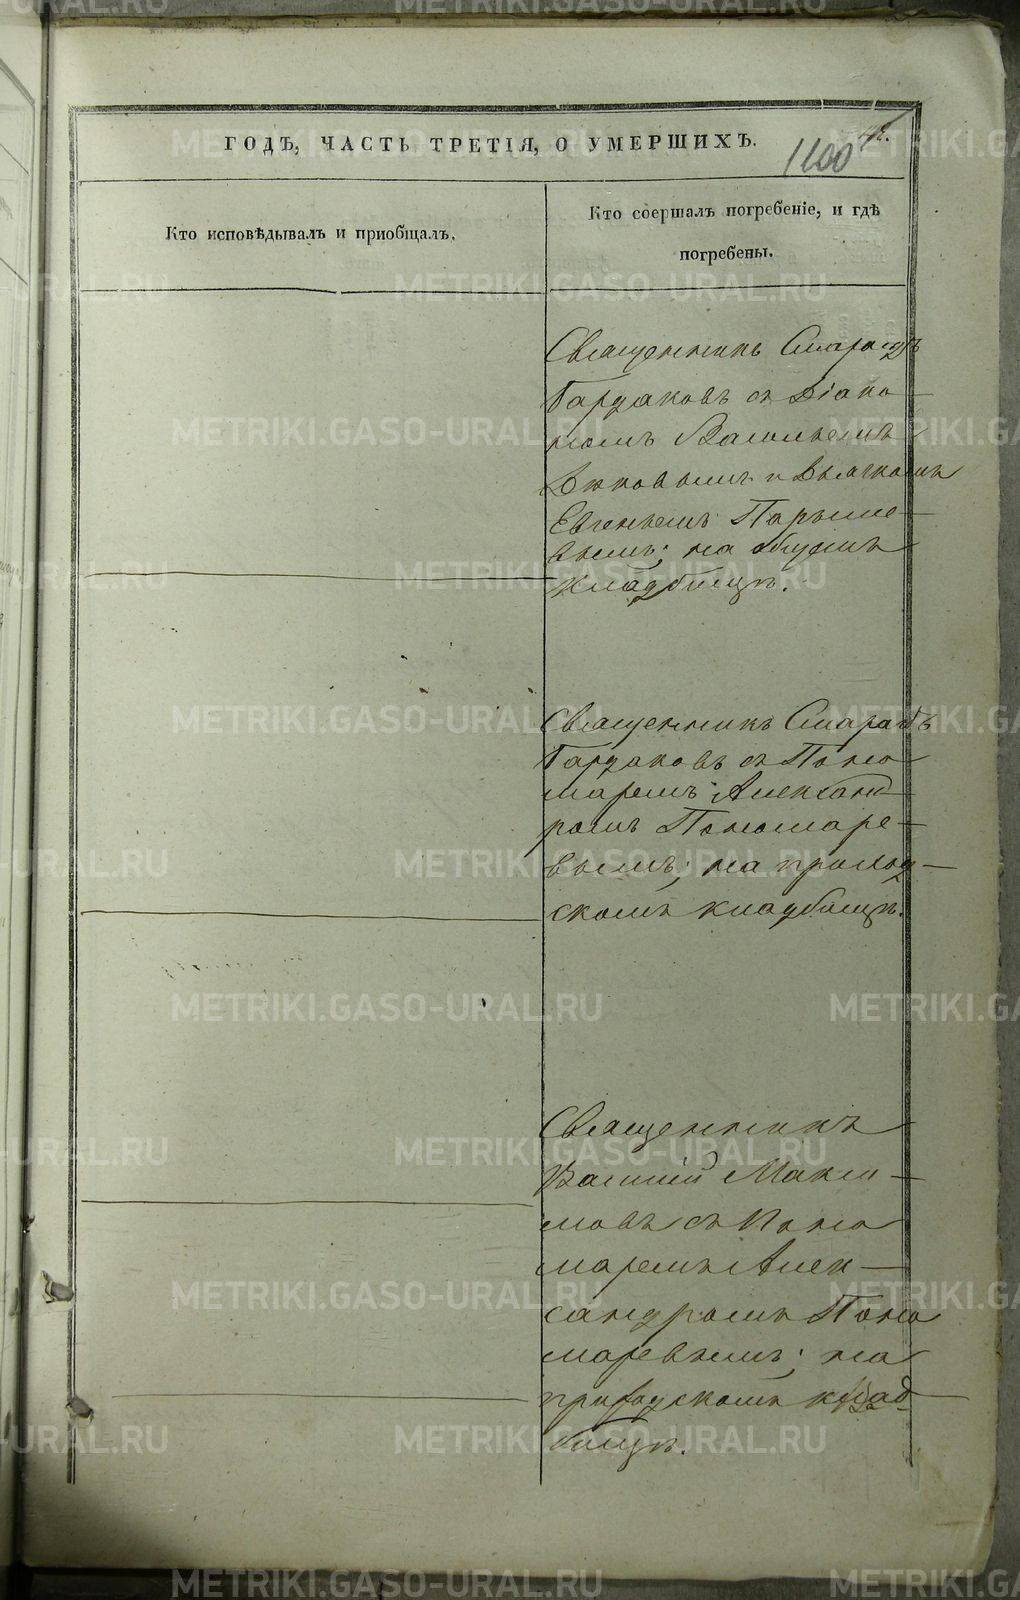 ГОДЪ, ЧАСТЬ ТРЕТІЯ, О УМЕРШИХЪ.
1100
Кто исповѣдывалъ и пріобщалъ.
Кто соершалъ погребеніе, и гдѣ
погребены.
Священникъ Смарагдъ
Гордаковъ съ Діако-
номъ Васильемъ
и Дьячкомъ
Евгеньемъ Парыше-
вымъ; на общемъ
кладбищѣ.
Священникъ Смарагдъ
Гордаковъ съ Поно
маремъ Александ-
ромъ Пономаре-
вымъ; на приход-
скомъ кладбищѣ.
Священникъ
Василій Макси-
мовъ съ Поно
маремъ Алек-
сандромъ Поно
маревымъ; на
приходскомъ клад-
бищѣ.
METRIKI.GASO-URAL.RU